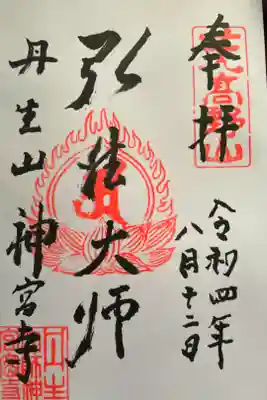 奉拝
高野山
令和四年
八月十二日
弘法大師
丹生山神宮寺